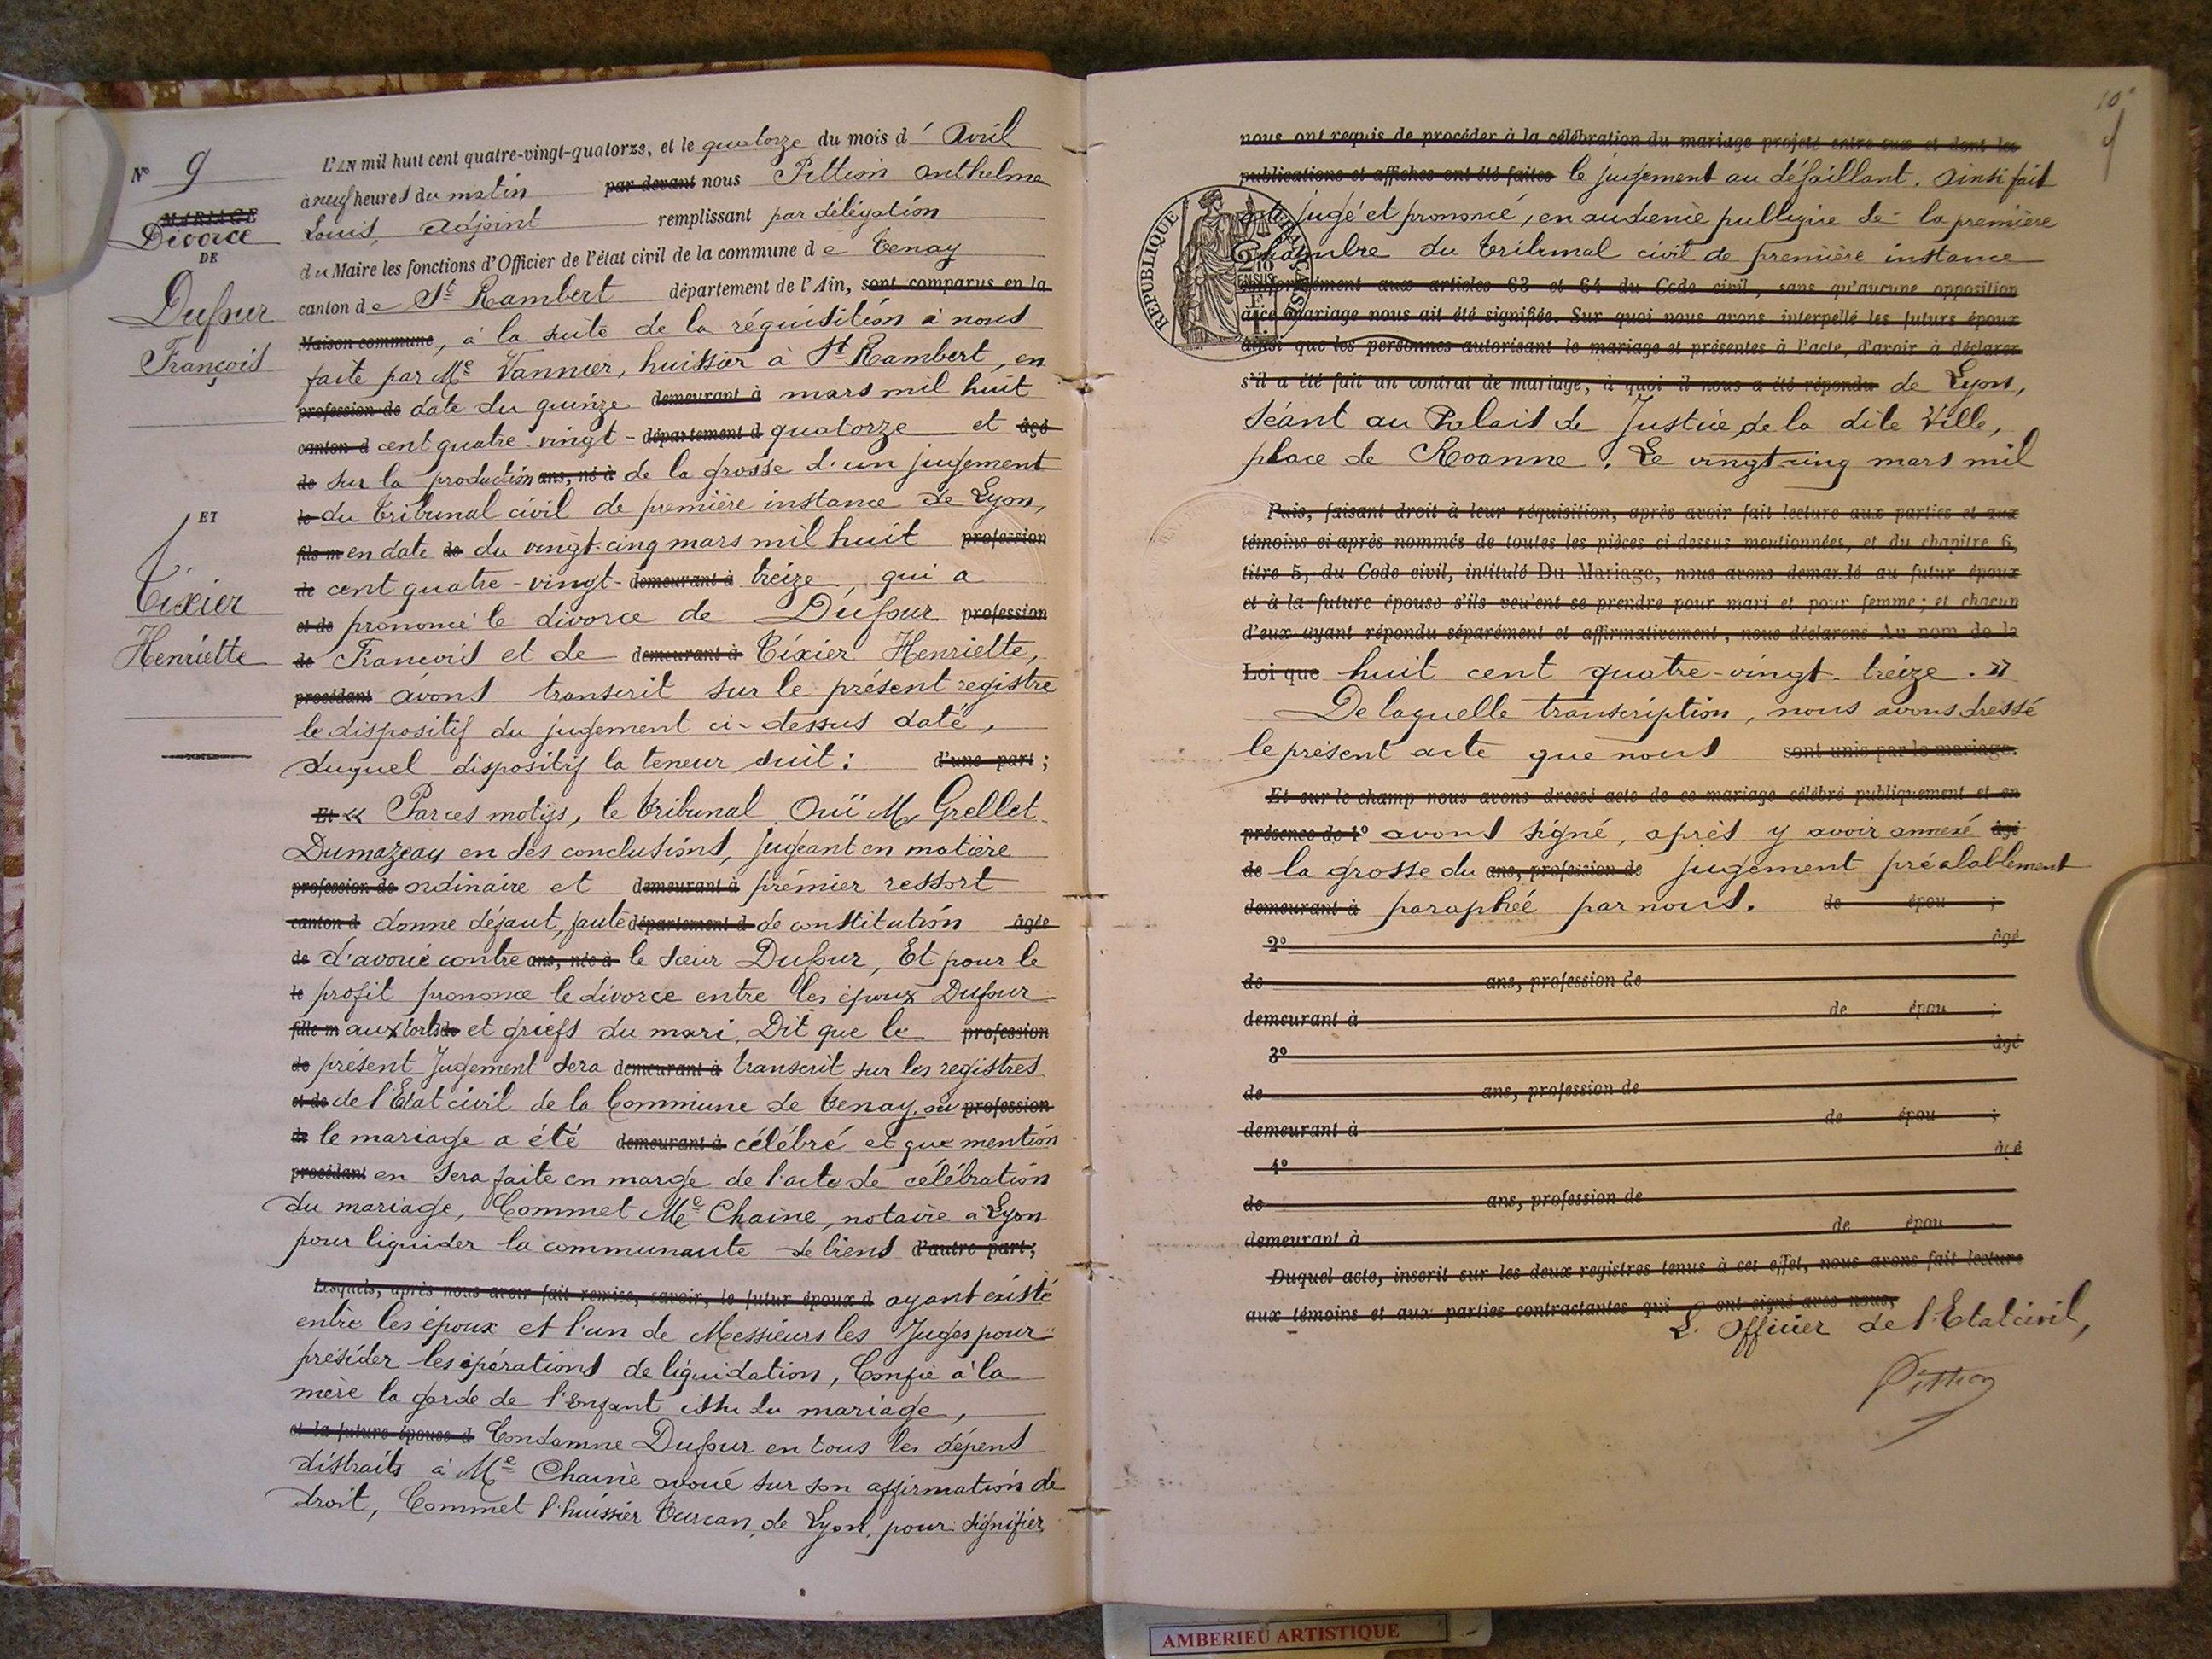 N° 9
MARIAGE
Divorce
DE
Dufour
François
ET
Tixier
Henriette
L'AN mil huit cent quatre-vingt-quatorze, et le quatorze du mois d' Avril
à neuf heures du matin par devant nous Pittion Anthelme
Louis, Adjoint remplissant par délégation
du Maire les fonctions d'Officier de l'état civil de la commune de Tenay
canton de St Rambert département de l'Ain, sont comparus en la
Maison commune, à la suite de la réquisition à nous
faite par Me Vannier, huissier à St Rambert, en
profession de date du quinze demeurant à mars mil huit
canton d cent quatre-vingt- département d quatorze et âgé
de sur la production ans, né à de la grosse d'un jugement
le du tribunal civil de première instance de Lyon,
fils m en date de du vingt-cinq mars mil huit profession
de cent quatre-vingt- demeurant à treize, qui a
et de prononcé le divorce de Dufour profession
de François et de demeurant à Tixier Henriette,
procédant avons transcrit sur le présent registre
le dispositif du jugement ci-dessus daté,
duquel dispositif la teneur suit : d'une part ;
Et « Par ces motifs, le tribunal Ouï M. Grellet-
Dumazeau en ses conclusions, jugeant en matière
profession de ordinaire et demeurant à prémier ressort
canton d donne défaut, faute département d de constitution âgée
de d'avoué contre ans, née à le sieur Dufour, Et pour le
le profit prononce le divorce entre les époux Dufour
fille m aux torts de et griefs du mari, Dit que le profession
de présent Jugement sera demeurant à transcrit sur les registres
et de de l'Etat civil de la Commune de Tenay, où profession
de le mariage a été demeurant à célébré et que mention
procédant en sera faite en marge de l'acte de célébration
du mariage, Commet Me Chaine, notaire à Lyon
pour liquider la communauté de biens d'autre part ;
Lesquels, après nous avoir fait remise, savoir, le futur époux d ayant existé
entre les époux et l'un de Messieurs les Juges pour
présider les opérations de liquidation, Confie à la
mère la garde de l'enfant issu du mariage,
et la future épouse d Condamne Dufour en tous les dépens
distraits à Me Chaine avoué sur son affirmation de
droit, Commet l'huissier Turcan, de Lyon, pour signifier
10
nous ont requis de procéder à la célébration du mariage projeté entre eux et dont les
publications et affiches ont été faites le jugement au défaillant. Ainsi fait
jugé et prononcé, en audience publique de la première
Chambre du tribunal civil de première instance
RÉPUBLIQUE FRANÇAISE
conformément aux articles 63 et 64 du Code civil, sans qu'aucune opposition
à ce mariage nous ait été signifiée. Sur quoi nous avons interpellé les futurs époux
ainsi que les personnes autorisant le mariage et présentes à l'acte, d'avoir à déclarer
s'il a été fait un contrat de mariage, à quoi il nous a été répondu de Lyon,
séant au Palais de Justice de la dite Ville,
place de Roanne. Le vingt cinq mars mil
Puis, faisant droit à leur réquisition, après avoir fait lecture aux parties et aux
témoins ci-après nommés de toutes les pièces ci-dessus mentionnées, et du chapitre 6,
titre 5, du Code civil, intitulé Du Mariage, nous avons demandé au futur époux
et à la future épouse s'ils veulent se prendre pour mari et pour femme ; et chacun
d'eux ayant répondu séparément et affirmativement, nous déclarons Au nom de la
Loi que huit cent quatre-vingt-treize. »
De laquelle transcription, nous avons dressé
le présent acte que nous sont unis par le mariage.
Et sur le champ nous avons dressé acte de ce mariage célébré publiquement et en
présence de 1° avons signé, après y avoir annexé âgé
de la grosse du ans, profession de jugement préalablement
demeurant à paraphée par nous. de épou ;
2° âgé
de ans, profession de
demeurant à de épou ;
3° âgé
de ans, profession de
demeurant à de épou ;
4° âgé
de ans, profession de
demeurant à de épou
Duquel acte, inscrit sur les deux registres tenus à cet effet, nous avons fait lecture
aux témoins et aux parties contractantes qui ont signé avec nous,
L'Officier de l'Etat civil,
Pittion
AMBERIEU ARTISTIQUE